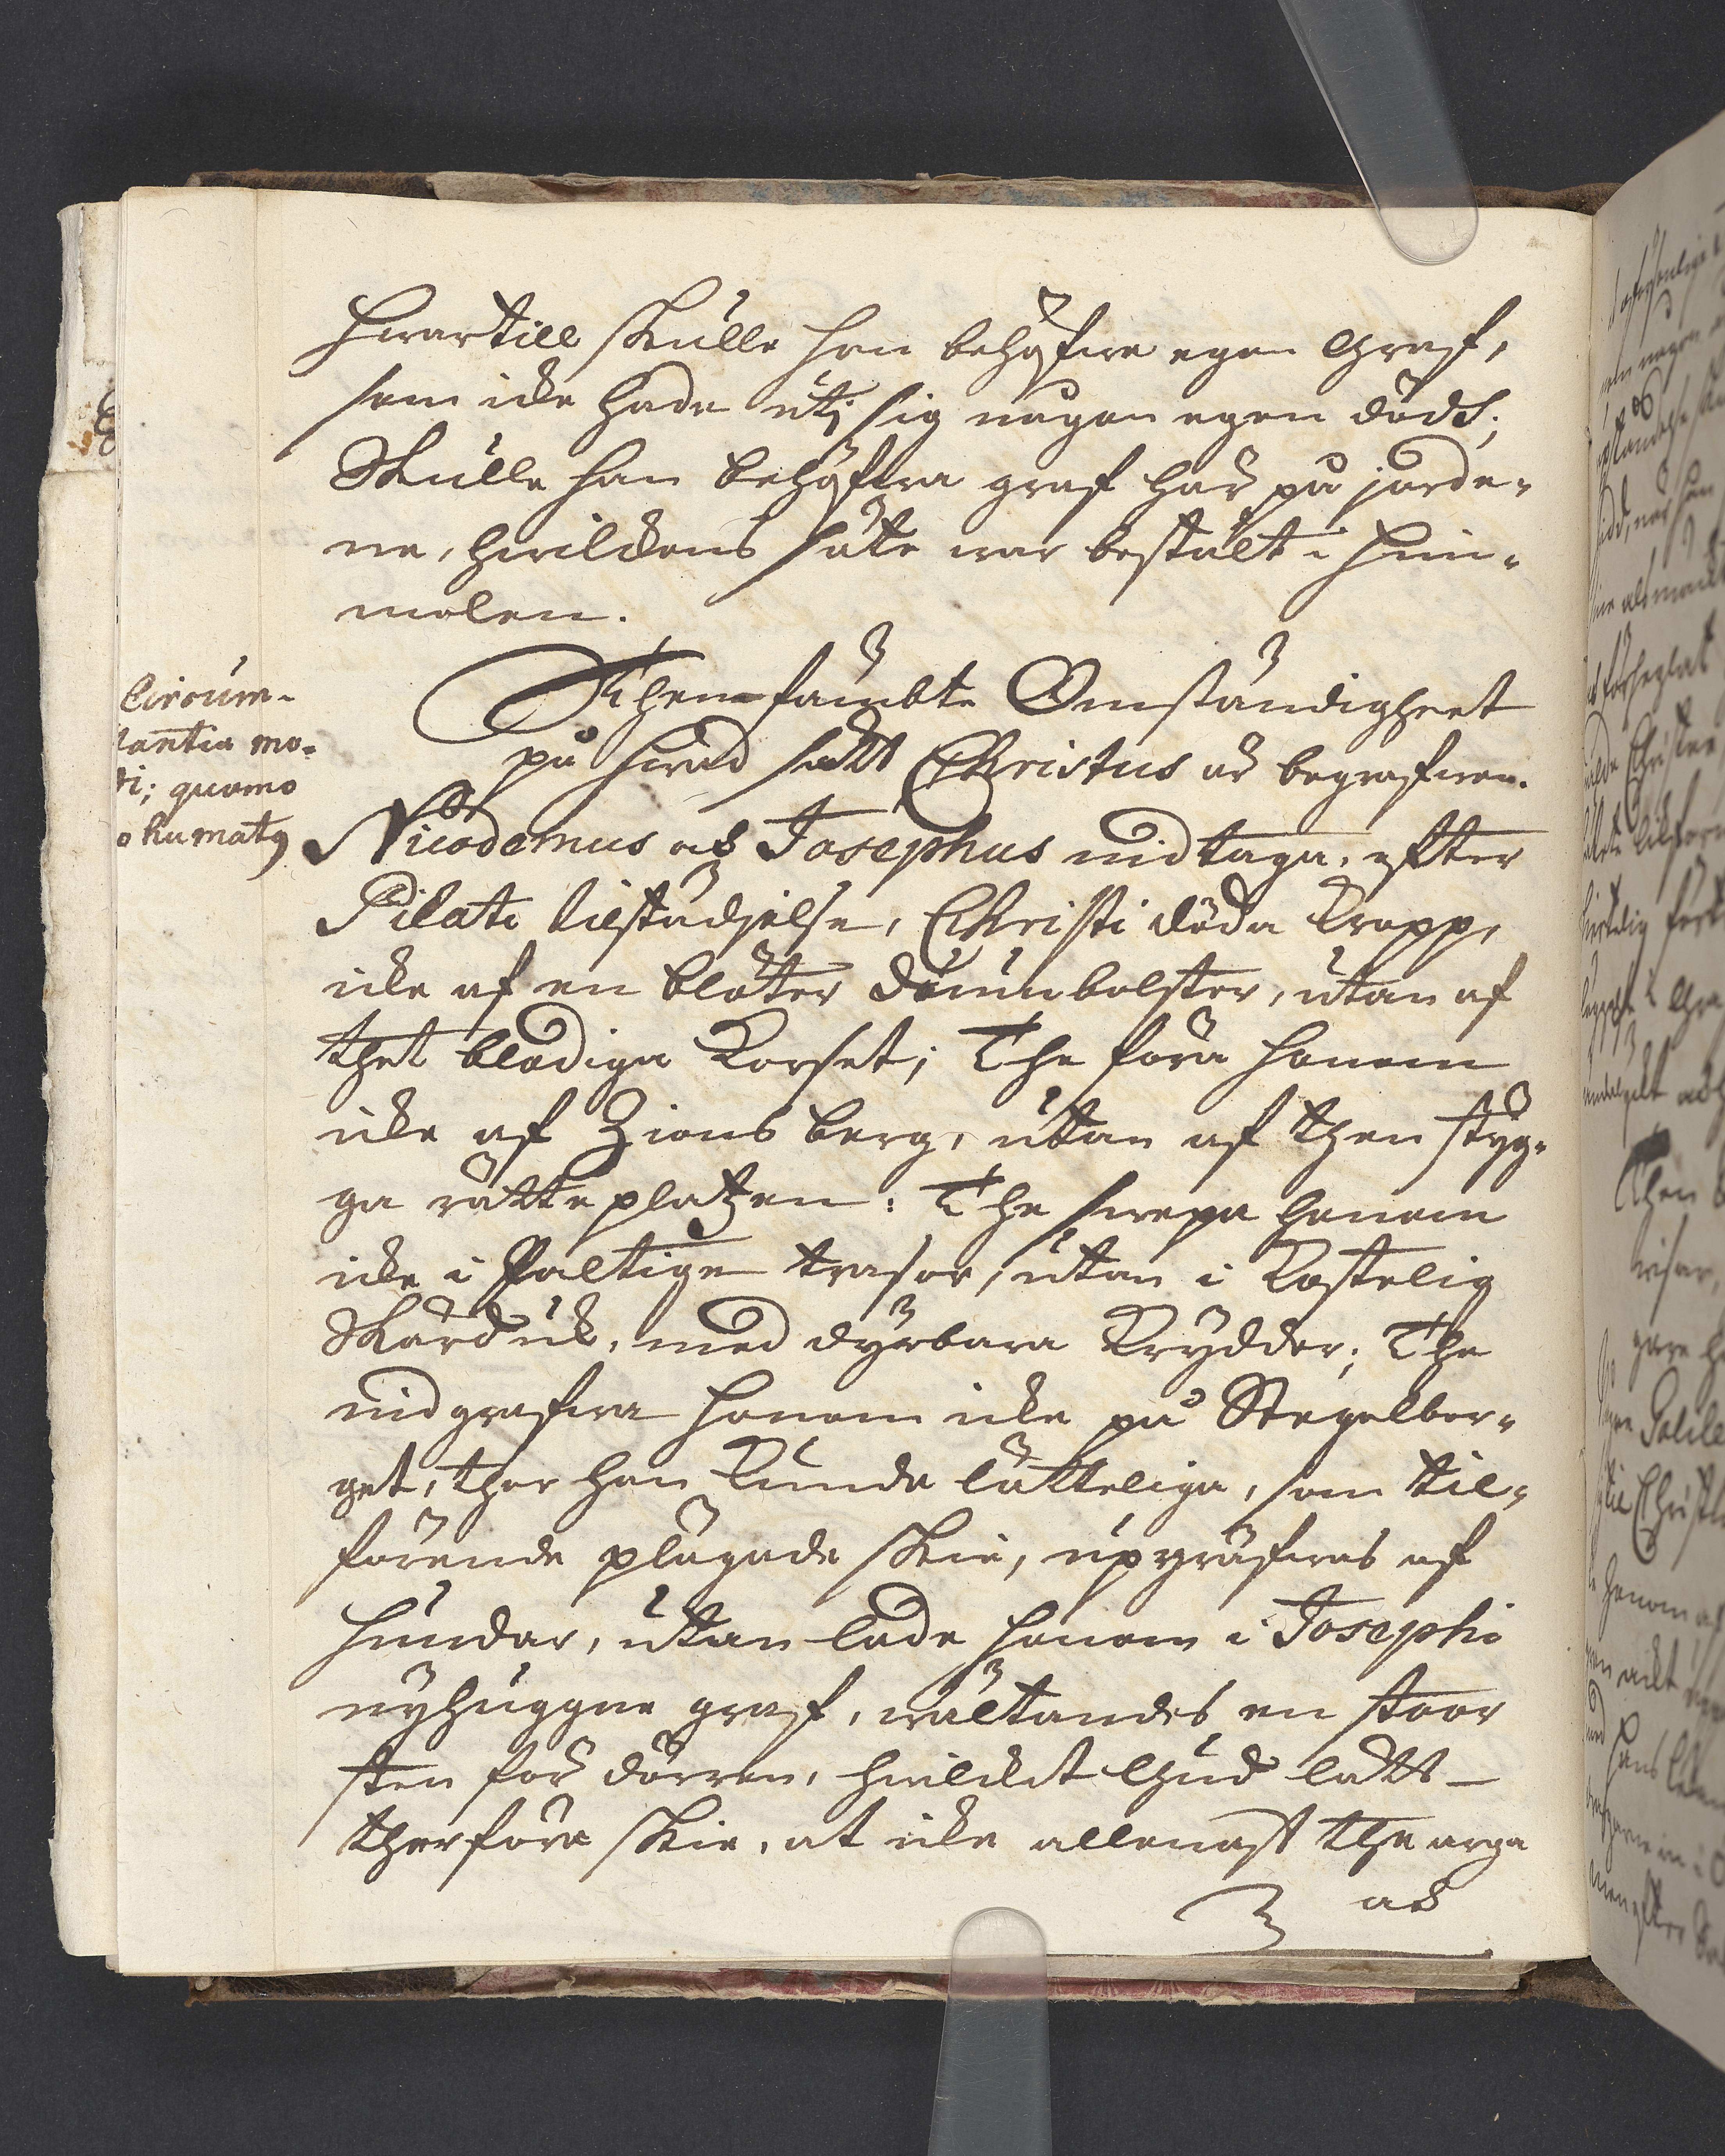 Hwartill skulle han behöfwa egen Graf,
som icke hade uti sig någon egen död;
Skulle han behöfwa graf här på jorde-
ne, hwilckens säte war bestält i Him-
melen.
Circum-
stantia mo-
di; quomo
do humatq
Then femte Omständigheet
på hwad sätt Christus är begrafwen.
Nicodemus och Josephus nidtaga, efter
Pilati tilstädjelse, Christi döda Kropp,
icke af en blöter dunnbolster, utan af
thet blodiga Korset; The föra honom
icke af Zions berg, utan af then styg-
ga rätteplatzen: The swepa honom
icke i paltige trasor, utan i kostelig
Skärduk, med dyrbara Krydder; The
nidgrafwa honom icke på Stegelber-
get, ther han kunde lätteliga, som til-
förende plägade skie, upgräfwas af
hundar, utan lade honom i Josephi
nyhuggne graf, wältandes en stoor
sten för dörren, hwilcket Gud lätt
therföre skie, at icke allenast the arga
och